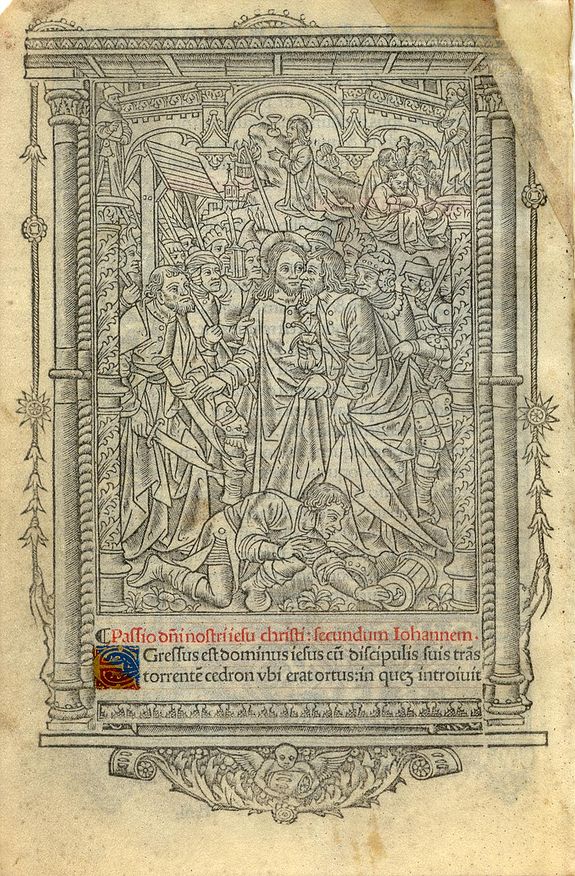 ⸿Passio dñi nostri iesu christi: secundum Iohannem.
EGressus est dominus iesus cũ discipulis suis trãs
torrentẽ cedron vbi erat ortus: in quez introiuit